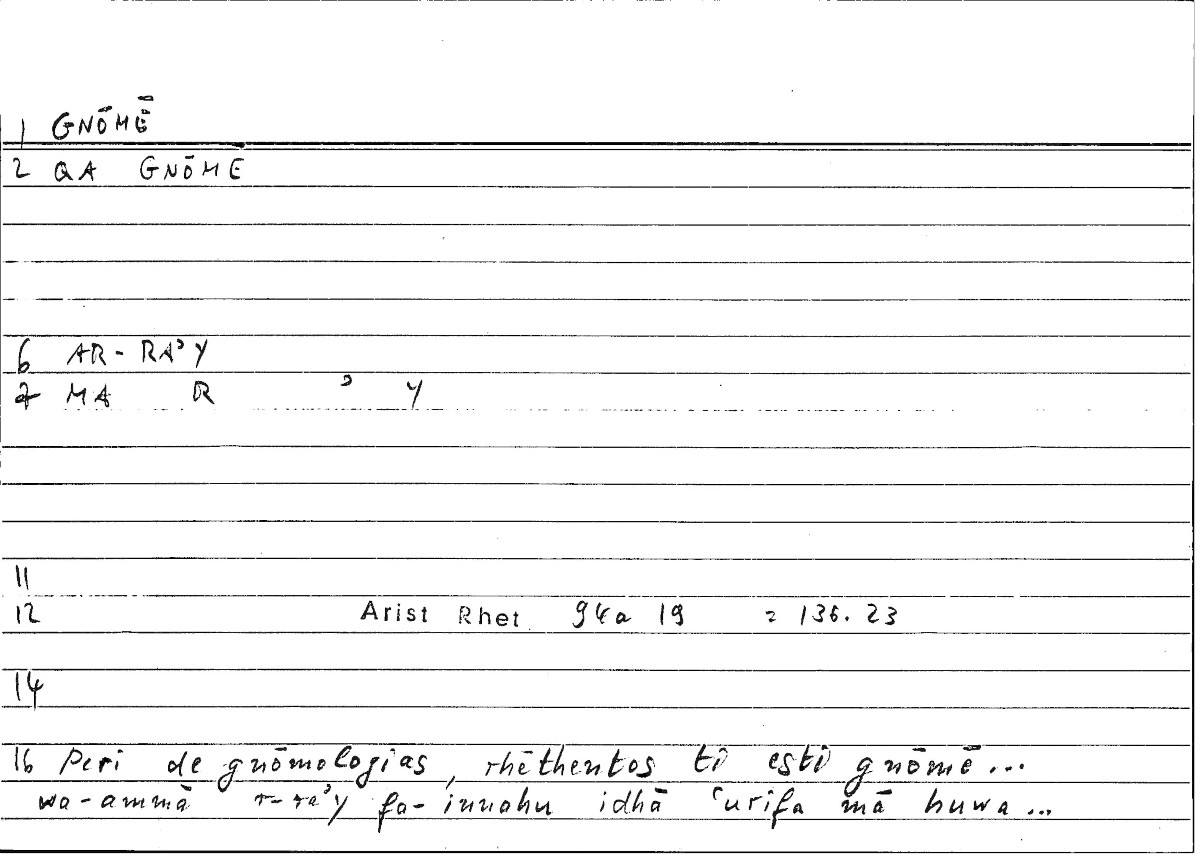 1 GNŌMĒ
2 QA GNŌME
6 AR-RAʾY
7 MA R ʾ Y
11
12 Arist Rhet 94a 19 = 136.23
14
16 Peri de gnōmologias, rhēthentos ti esti gnōmē...
wa-ammā r-raʾy fa-innahu idhā ʿurifa mā huwa...